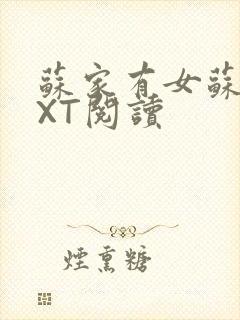 蘇家有女蘇
XT閱讀
煙熏糖